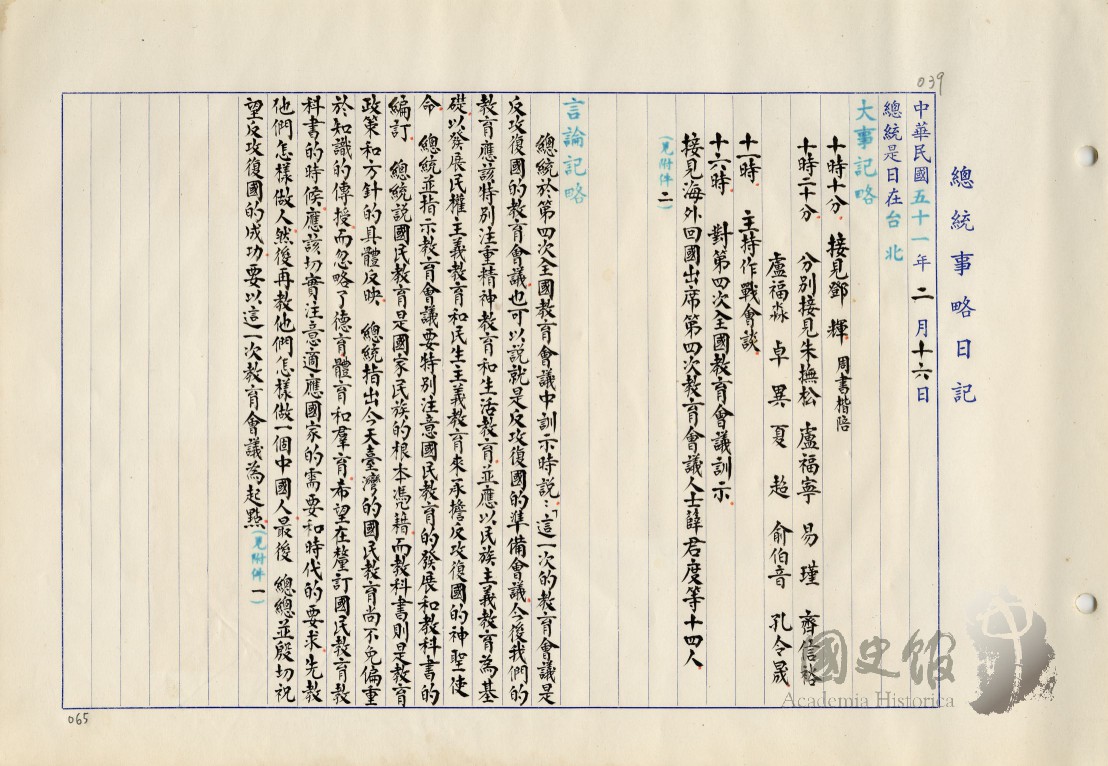 039
總統事略日記
中華民國五十一年二月十六日
總統是日在台北
大事記略
十時十分　接見鄧　輝　周書楷陪
十時二十分　分別接見朱撫松　盧福寧　易　瑾　齊信裕
盧福淼　卓　異　夏　超　俞伯音　孔令晟
十一時　主持作戰會談
十六時　對第四次全國教育會議訓示
接見海外回國出席第四次教育會議人士薛君度等十四人
(見附件二)
言論記略
總統於第四次全國教育會議中訓示時說：「這一次的教育會議是
反攻復國的教育會議也可以說就是反攻復國的準備會議今後我們的
教育應該特別注重精神教育和生活教育並應以民族主義教育為基
礎以發展民權主義教育和民生主義教育來承擔反攻復國的神聖使
命　總統並指示教育會議要特別注意國民教育的發展和教科書的
編訂　總統說國民教育是國家民族的根本憑藉而教科書則是教育
政策和方針的具體反映　總統指出今天臺灣的國民教育尚不免偏重
於知識的傳授而忽略了德育體育和羣育希望在釐訂國民教育教
科書的時候應該切實注意適應國家的需要和時代的要求先教
他們怎樣做人然後再教他們怎樣做一個中國人最後　總總並殷切祝
望反攻復國的成功要以這一次教育會議為起點(見附件一)
065
國史館
Academia Historica